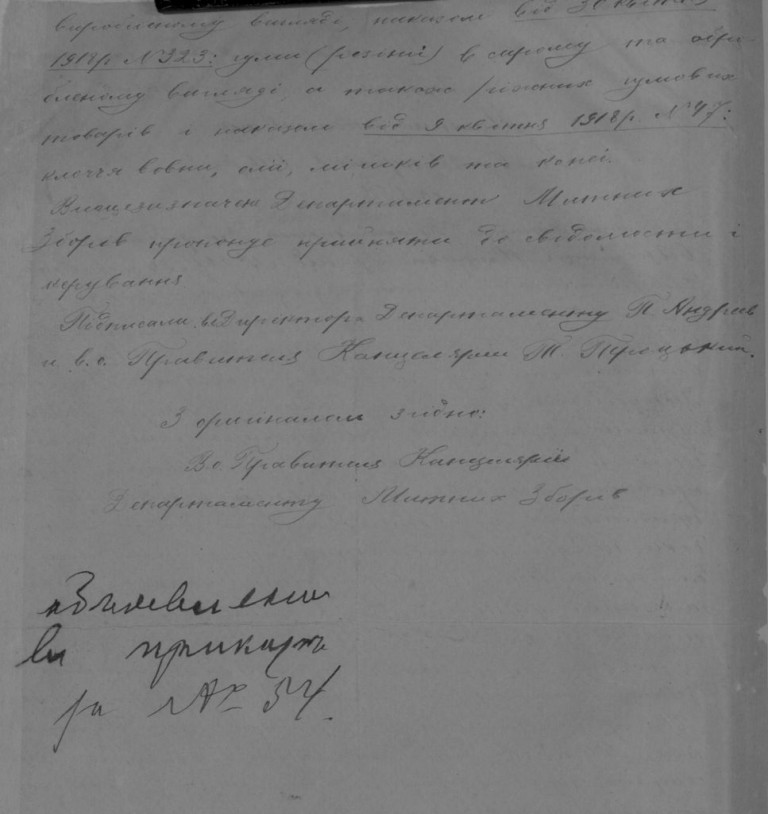 виробленому вигляді, наказом від 30 квітня
1918р. №323: гуми (резіни) в сирому та обро-
бленому вигляді, а також ріжних гумових
товарів і наказом від 9 квітня 1918р. №47:
клоччя вовни, олії, мішків та копії.
Вищезазначене Департамент Митних
Зборів пропонує прийняти до свідомости і
керування
Підписали: в.с. Директора Департаменту П. Андріїв
и в.с. Правителя Канцелярии Т.
З оригіналом згідно:
В.с. Правителя Канцелярії
Департаменту Митних Зборів
в приказъ
за № 54.